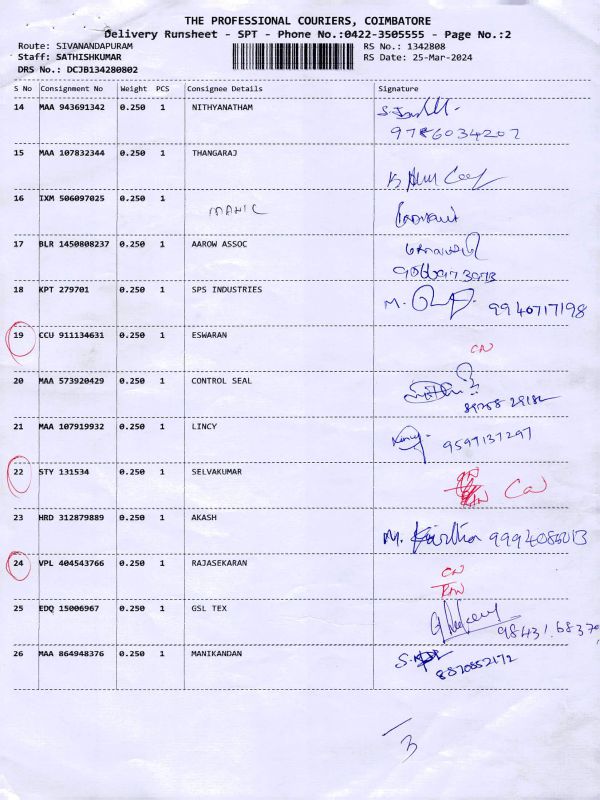 THE PROFESSIONAL COURIERS, COIMBATORE
Delivery Runsheet - SPT - Phone No.:0422-3505555 - Page No.:2
Route: SIVANANDAPURAM RS No.: 1342808
Staff: SATHISHKUMAR RS Date: 25-Mar-2024
DRS No.: DCJB134280802
S No Consignment No Weight PCS Consignee Details Signature
14 MAA 943691342 0.250 1 NITHYANATHAM
9786034207
15 MAA 107832344 0.250 1 THANGARAJ
16 IXM 506097025 0.250 1
MANIC
17 BLR 1450808237 0.250 1 AAROW ASSOC
18 KPT 279701 0.250 1 SPS INDUSTRIES
M. 9940717198
19 CCU 911134631 0.250 1 ESWARAN
CN
20 MAA 573920429 0.250 1 CONTROL SEAL
21 MAA 107919932 0.250 1 LINCY
9597137297
22 STY 131534 0.250 1 SELVAKUMAR
23 HRD 312879889 0.250 1 AKASH
M.
24 VPL 404543766 0.250 1 RAJASEKARAN
CN
25 EDQ 15006967 0.250 1 GSL TEX
26 MAA 864948376 0.250 1 MANIKANDAN
8870852172
3